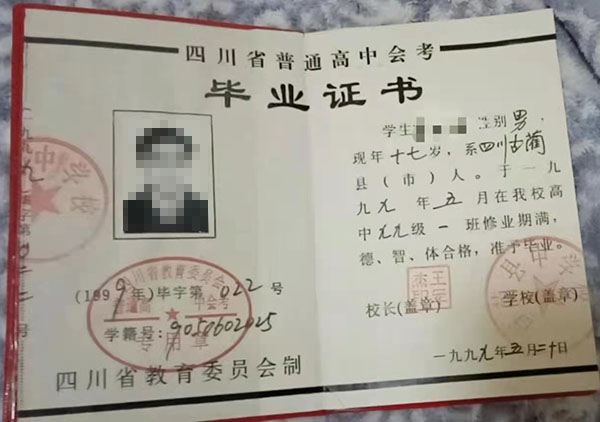 四川省普通高中会考
毕业证书
学生 性别男，
现年十七岁，系四川古蔺
县（市）人。于一九
九九年五月在我校高
中九九级一班修业期满，
德、智、体合格，准予毕业。
校长(盖章)
学校(盖章)
一九九九年五月二十日
四川省教育委员会
(1999年)毕字第022号
普通高中会考
学籍号:9050602025
专用章
四川省教育委员会制